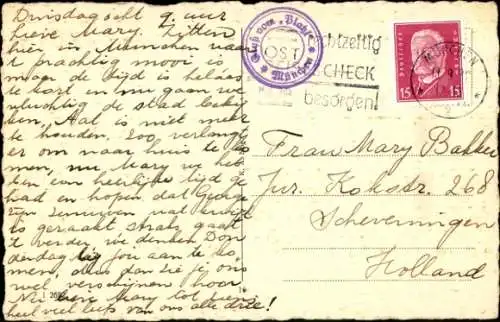 Dinsdagocht 9 uur
Lieve Mary. Zitten
hier in München waar
't prachtig mooi is
maar de tijd is helaas
te kort en nu gaan we
vluchtig de stad
Aal is niet meer
te houden. Zoo verlangt
er om naar huis te
men, nu Mary we heb
ken een heerlijke tijd ge
had en hopen dat
zijn zenuwen wat
is geraakt straks gaat
't verder, we denken Don
derdag bij jou aan te ko
men, dus dan zie je ons
wel verschijnen hoor
Nu lieve Mary tot zien
heel veel liefs van ons alle drie!
Gruß vom "Platzl"
OST
München
chtzeitig
CHECK
besorgen!
Deutsches Reich
15 15
MÜNCHEN
Frau Mary Bakker
Jur. Kokstr. 268
Scheveningen
Holland